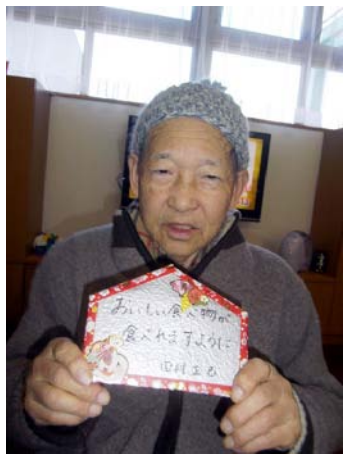 おいしい食べ物が
食べれますように
田村正巳